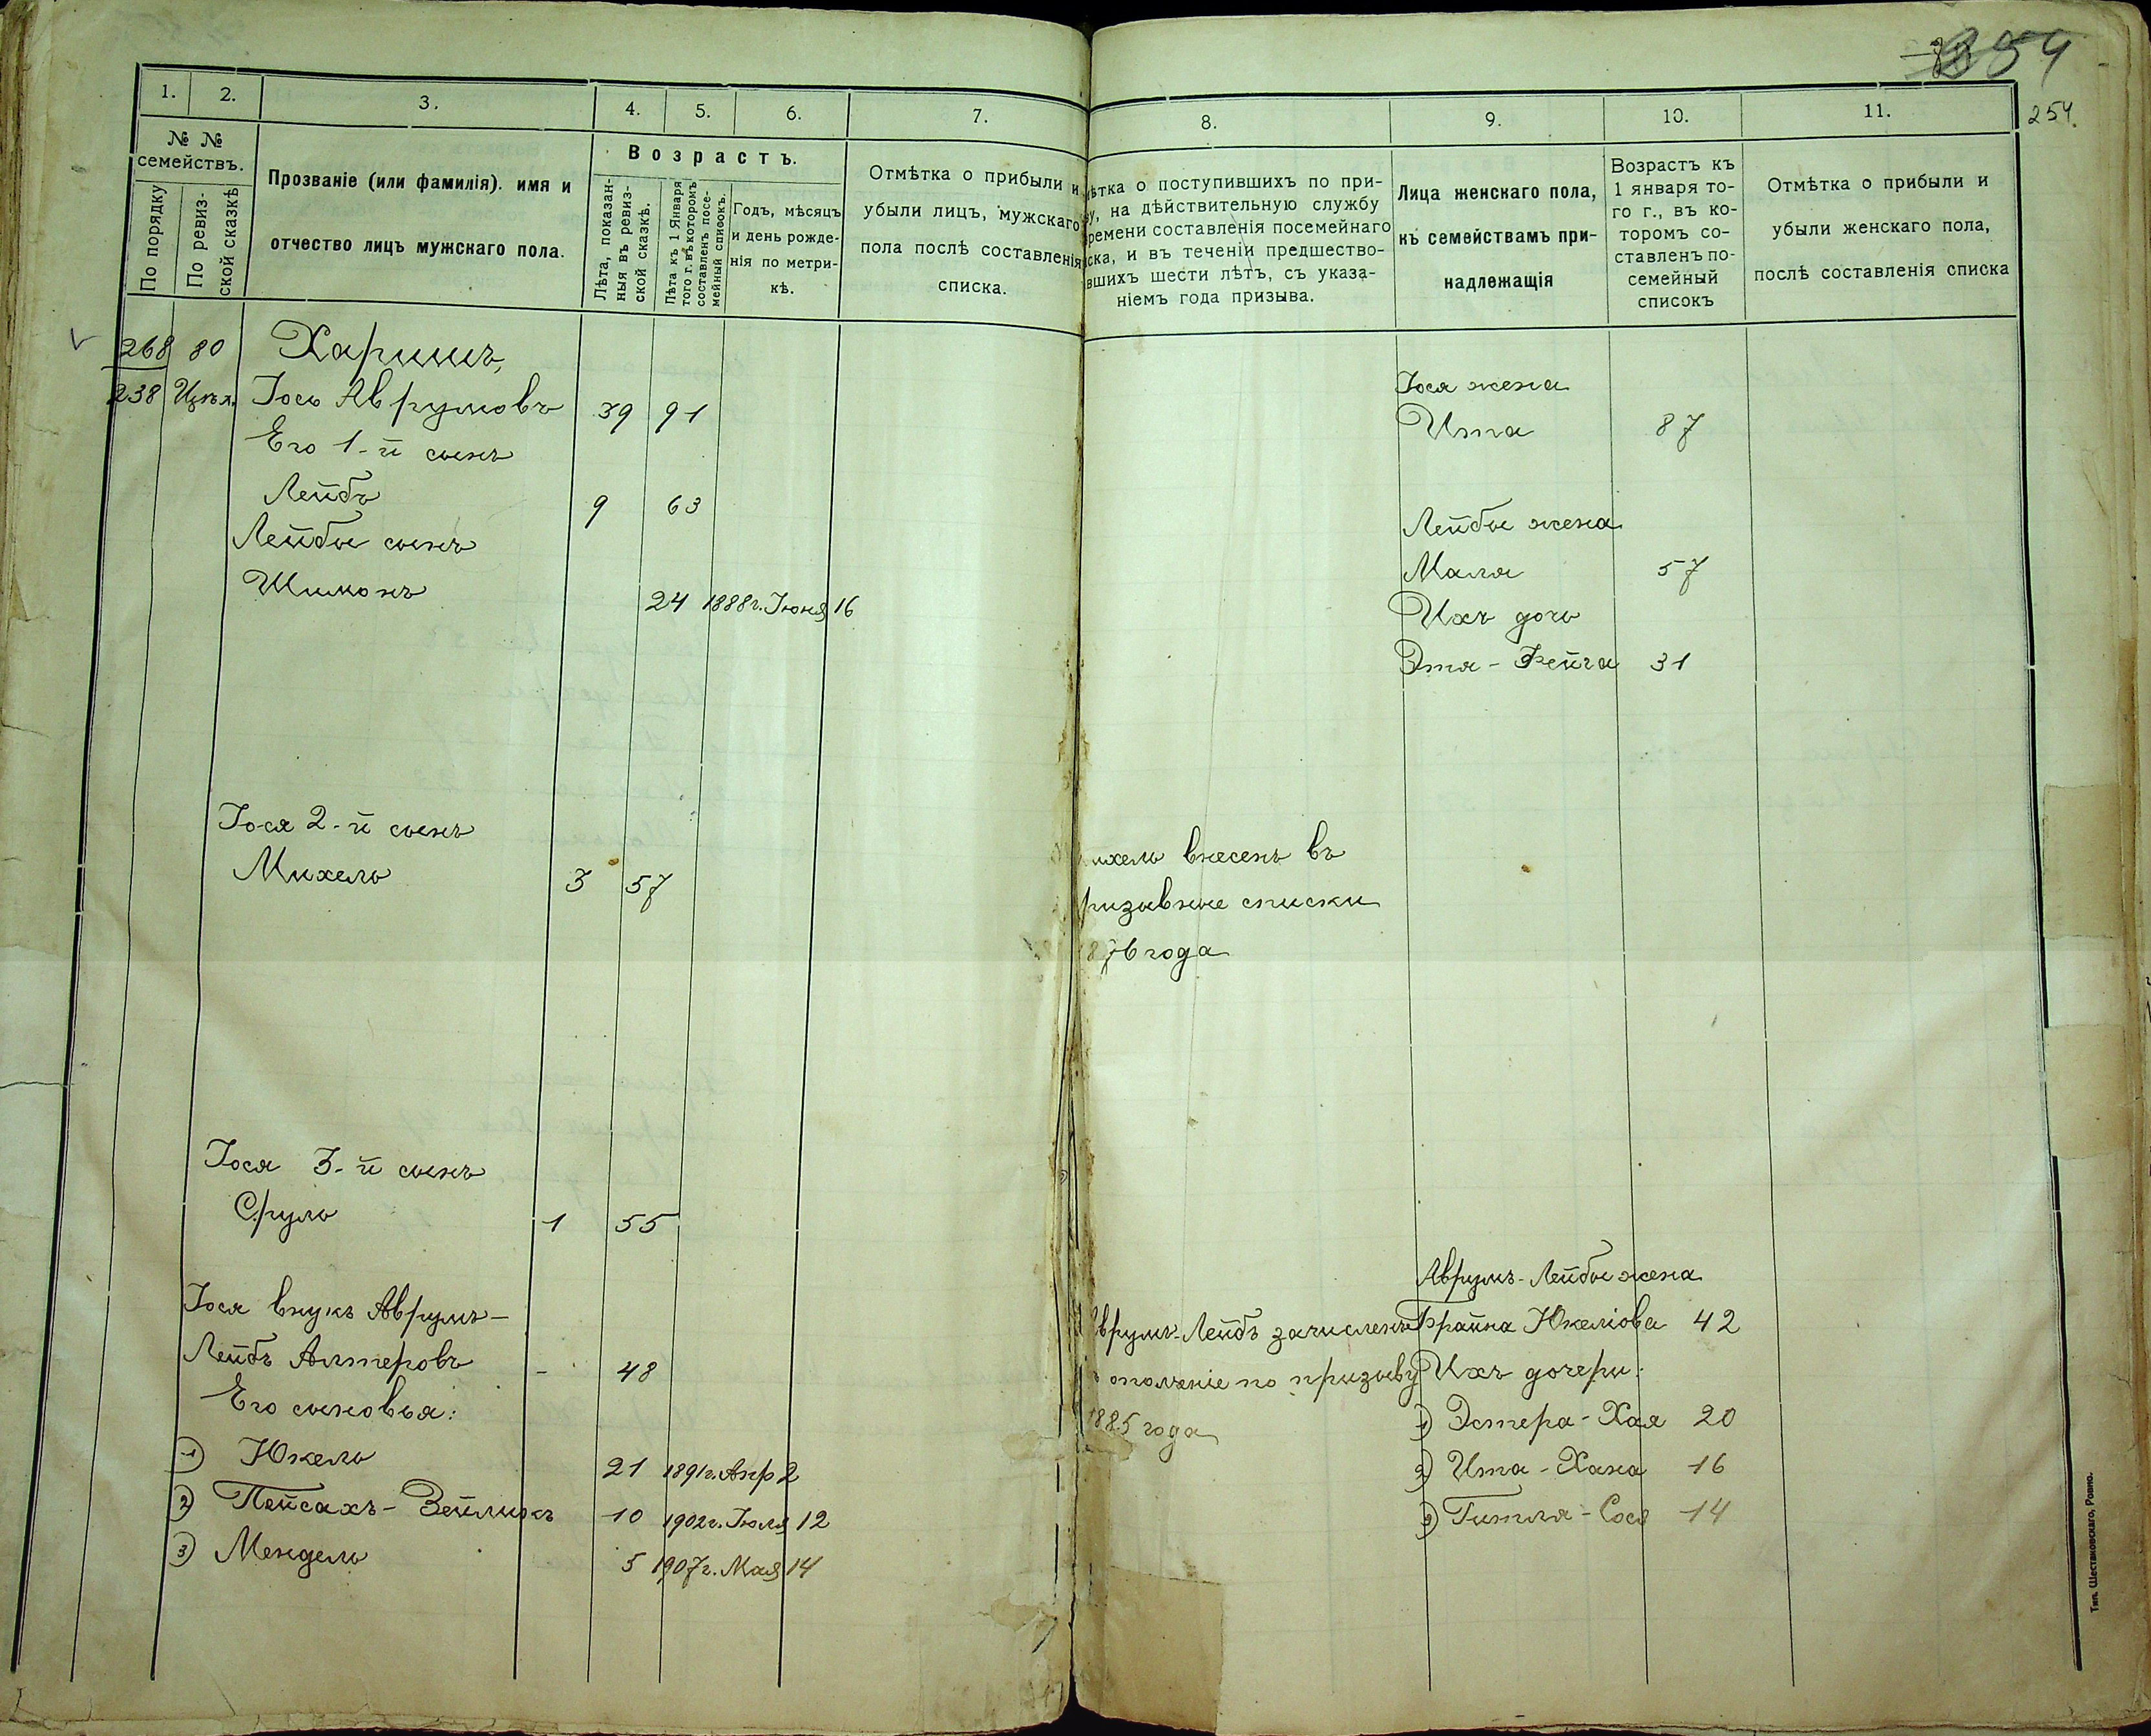 254
254.
1. 2. 3. 4. 5. 6. 7.
№ №
семействъ.
По порядку
По ревиз-
ской сказкѣ
Прозваніе (или фамилія). имя и
отчество лицъ мужскаго пола.
Возрастъ.
Лѣта, показан-
ныя въ ревиз-
ской сказкѣ.
Лѣта къ 1 Января
того г. въ которомъ
составленъ посе-
мейный списокъ.
Годъ, мѣсяцъ
и день рожде-
нія по метри-
кѣ.
Отмѣтка о прибыли и
убыли лицъ, мужскаго
пола послѣ составленія
списка.
268 80 Харишъ,
238 Іось Аврумовъ 39 91
Его 1-й сынъ
Лейбъ 9 63
Лейбы сынъ
Шимонъ 24 1888г. Іюня 16
Іося 2-й сынъ
Михель 3 57
Іося 3-й сынъ
Сруль 1 55
Іося внукъ Аврумъ-
Лейбъ Алтеровъ - 48
Его сыновья:
1) Юкель 21 1891г. Апр 2
2) Пейсахъ-Зейликъ 10 1902г. Іюля 12
3) Мендель 5 1907г. Мая 14
8. 9. 10. 11.
ѣтка о поступившихъ по при-
у, на дѣйствительную службу
ремени составленія посемейнаго
ска, и въ теченіи предшество-
вшихъ шести лѣтъ, съ указа-
ніемъ года призыва.
Лица женскаго пола,
къ семействамъ при-
надлежащія
Возрастъ къ
1 января то-
го г., въ ко-
торомъ со-
ставленъ по-
семейный
списокъ
Отмѣтка о прибыли и
убыли женскаго пола,
послѣ составленія списка
Іося жена
Ита 87
Лейбы жена
Маля 57
Ихъ дочь
Этя-Фейга 31
ихель внесенъ въ
ризывные списки
876 года
Аврумъ-Лейбы жена
врумъ-Лейбъ зачисленъ Брайна Юкеліова 42
ополченіе по призыву Ихъ дочери:
1885 года 1) Эстера-Хая 20
2) Ита-Хана 16
3) Гитля-Сося 14
Тип. Шестаковскаго, Ровно.